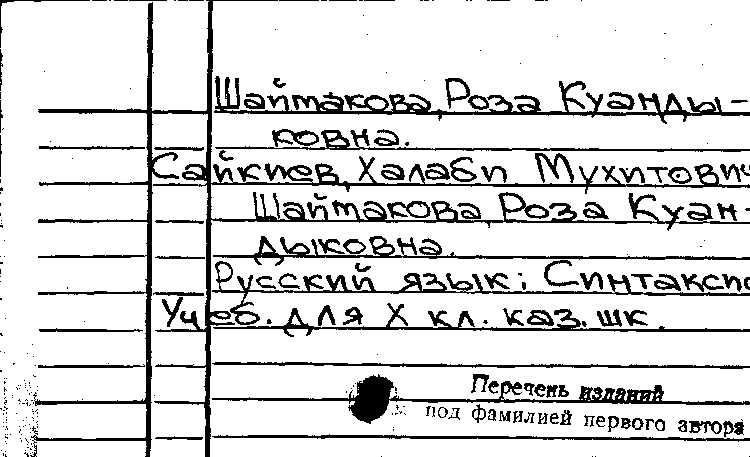 Шаймакова, Роза Куанды-
ковна.
Сайкиев, Халаби Мухитович
Шаймакова, Роза Куан-
дыковна.
Русский язык: Синтаксис
Учеб. для X кл. каз. шк.
Перечень изданий
под фамилией первого автора